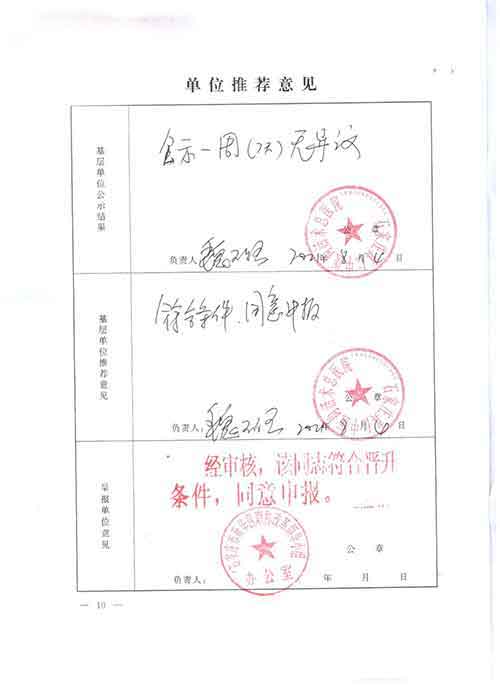 单位推荐意见
基层单位公示结果
公示一周(7天)无异议
公章
负责人: 2021年8月4日
基层单位推荐意见
符合条件、同意申报
公章
负责人: 2021年8月4日
呈报单位意见
经审核,该同志符合晋升
条件,同意申报。
办公室
公章
负责人: 年 月 日
— 10 —